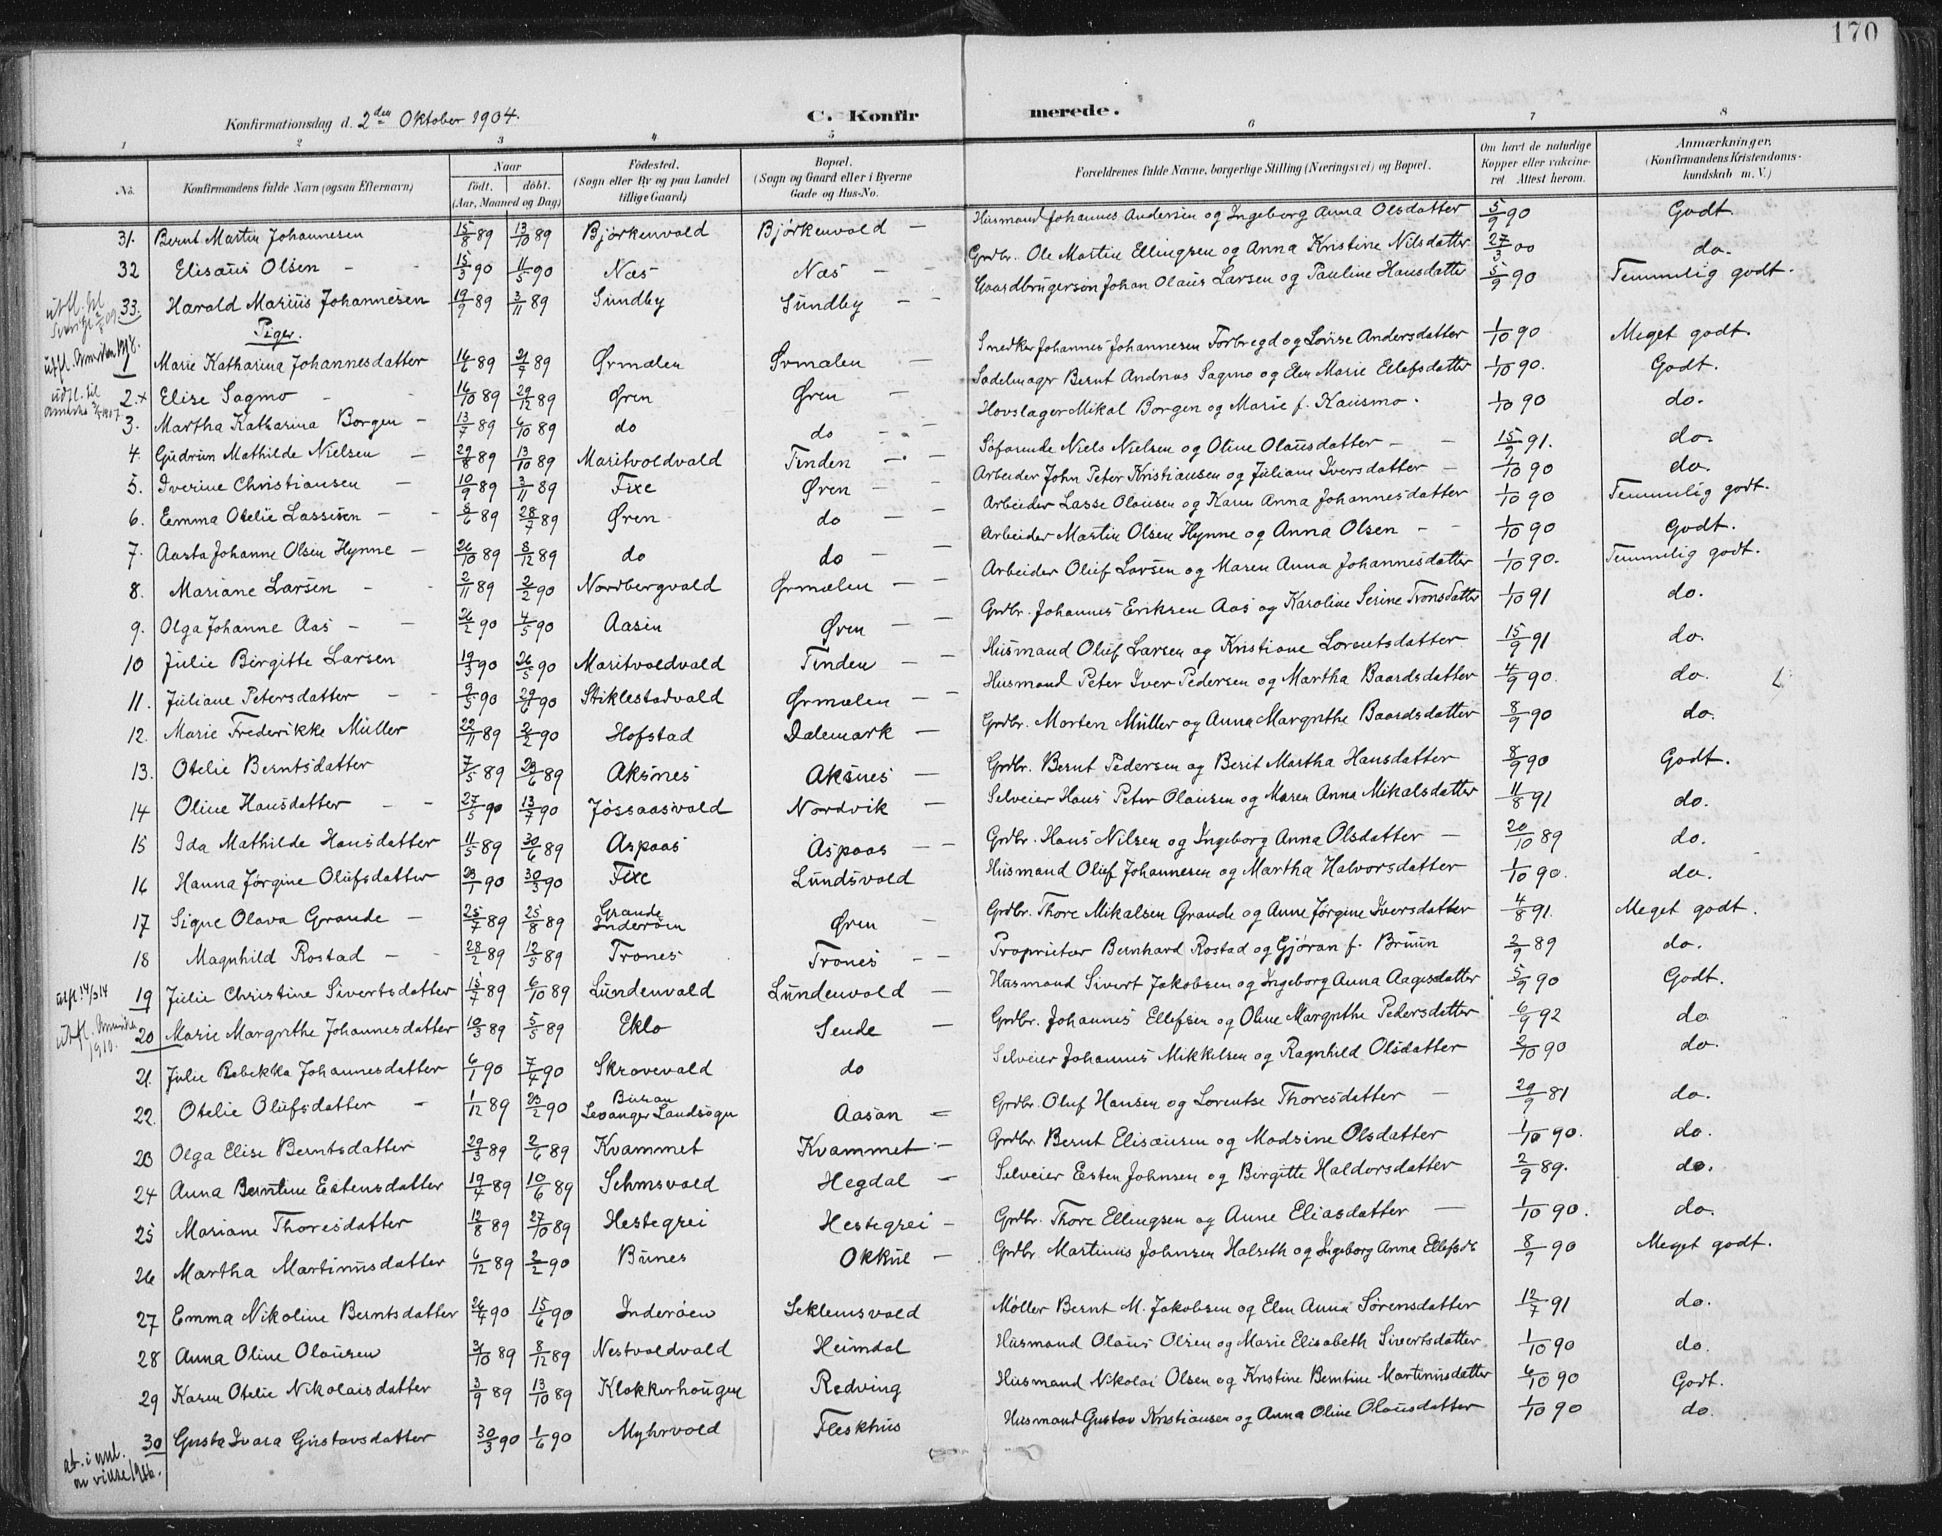 170
Konfirmationsdag d. 2den Oktober 1904. C. Konfirmerede.
1 2 3 4 5 6 7 8
No. Konfirmandens fulde Navn (ogsaa Efternavn) Naar født. døbt. (Aar, Maaned og Dag) Fødested. (Sogn eller By og paa Landet tillige Gaard) Bopæl. (Sogn og Gaard eller i Byerne Gade og Hus-No. Forældrenes fulde Navne, borgerlige Stilling (Næringsvei) og Bopæl. Om havt de naturlige Kopper eller vakcineret. Attest herom. Anmærkninger. (Konfirmandens Kristendomskundskab m. V.)
31. Bernt Martin Johannesen 15/8 89 13/10 89 Bjørkenvald Bjørkenvald — Husmand Johannes Andersen og Ingeborg Anna Olsdatter 5/9 90 Godt
32 Elisæus Olsen - 15/3 90 11/5 90 Næs Næs — Grdbr. Ole Martin Ellingsen og Anna Kristine Nilsdatter 27/3 00 do.
33. Harald Marius Johannesen 19/9 89 3/11 89 Sundby Sundby - - Gaardbrugersøn Johan Olaus Larsen og Pauline Hansdatter 5/9 90 Temmelig godt.
Piger.
1 Marie Katharina Johannesdatter 14/6 89 21/7 89 Ørmælen Ørmælen — Snedker Johannes Johannesen Forbregd og Lovise Andersdatter 1/10 90 Meget godt.
2.+ Elise Sagmo - 16/10 89 29/12 89 Øren Øren — Sadelmager Bernt Andreas Sagmo og Elen Marie Ellefsdatter 1/10 90. Godt.
3. Martha Katharina Borgen - 13/7 89 6/10 89 do do - - Hovslager Mikal Borgen og Marie f. Kausmo. 1/10 90 do.
4. Gudrun Mathilde Nielsen — 29/8 89 13/10 89 Maritvoldvald Tinden — Søfarende Niels Nielsen og Oline Olausdatter - - 15/9 91. do.
5. Iverine Christiansen — 10/9 89 3/11 89 Fixe Øren - - Arbeider John Peter Kristiansen og Juliane Iversdatter - 1/10 90 do.
6. Emma Otelie Lassesen - - 8/6 89 28/7 89 Øren do - - Arbeider Lasse Olausen og Karen Anna Johannesdatter 1/10 90 Temmelig godt.
7. Aasta Johanne Olsen Hynne — 26/10 89 8/12 89 do do — Arbeider Martin Olsen Hynne og Anna Olsen - - 1/10 90 Godt.
8. Mariane Larsen - 2/11 89 2/2 90 Nordbergvald Ørmælen — Arbeider Oluf Larsen og Maren Anna Johannesdatter 1/10 90. Temmelig godt.
9. Olga Johanne Aas - - 26/2 90 4/5 90 Aasen Øren - - Grdbr. Johannes Eriksen Aas og Karoline Serine Tronsdatter 1/10 91 do.
10 Julie Birgitte Larsen 19/3 90 26/5 90 Maritvoldvald Tinden - - Husmand Oluf Larsen og Kristiane Lorentsdatter 15/9 91 do.
11. Juliane Petersdatter - - 9/5 90 29/6 90 Stiklestadvald Ørmælen — Husmand Peter Iver Pedersen og Martha Baardsdatter 4/9 90. do.
12. Marie Frederikke Müller 22/11 89 2/2 90 Hofstad Dalemark — Grdbr. Morten Müller og Anna Margrethe Baardsdatter 8/9 90 do.
13. Otelie Berntsdatter 7/5 89 23/6 89 Aksnes Aksnes — Grdbr. Bernt Pedersen og Berit Martha Hansdatter 8/9 90 Godt.
14 Oline Hansdatter - - 27/5 90 13/7 90 Jøssaasvald Nordvik — Selveier Hans Peter Olausen og Maren Anna Mikalsdatter 11/8 91 do.
15 Ida Mathilde Hansdatter 11/5 89 30/6 89 Aspaas Aspaas - - Grdbr. Hans Nilsen og Ingeborg Anna Olsdatter — 20/10 89 do.
16 Hanna Jørgine Olufsdatter 23/1 90 30/3 90 Fixe Lundsvald Husmand Oluf Johannesen og Martha Halvorsdatter 1/10 90. do.
17 Signe Olava Grande - 25/7 89 25/8 89 Grande Inderøen Øren — Grdbr. Thore Mikalsen Grande og Anne Jørgine Iversdatter 4/8 91. Meget godt.
18 Magnhild Rostad - - 28/2 89 12/5 89 Trones Trones - - Proprietær Bernhard Rostad og Gjøran f. Bruun 2/9 89 do.
19 Julie Christine Sivertsdatter 15/7 89 6/10 89 Lundenvald Lundenvald — Husmand Sivert Jakobsen og Ingeborg Anna Aagesdatter 5/9 90 Godt.
20 Marie Margrethe Johannesdatter 10/3 89 5/5 89 Eklo Sende — Grdbr. Johannes Ellefsen og Oline Margrethe Pedersdatter 6/9 92 do
21. Julie Rebekka Johannesdatter 6/1 90 7/4 90 Skrovevald do Selveier Johannes Mikkelsen og Ragnhild Olsdatter 2/10 90 do.
22. Otelie Olufsdatter - 1/12 89 23/2 90 Levanger Landsogn Aasan = Grdbr. Oluf Hansen og Lorentse Thoresdatter — 29/9 81 do.
23 Olga Elise Berntsdatter 29/3 89 2/6 89 Kvammet Kvammet - Grdbr. Bernt Elisæusen og Madsine Olsdatter 1/10 90. do.
24 Anna Berntine Estensdatter 19/4 89 10/6 89 Semsvald Hegdal — Selveier Esten Johnsen og Birgitte Haldorsdatter 2/9 89. do.
25 Mariane Thoresdatter 12/8 89 27/10 89 Hestegrei Hestegrei - Grdbr. Thore Ellingsen og Anne Eliasdatter — 1/10 90. do.
26 Martha Martinusdatter 6/12 89 2/2 90 Bunes Okkul — Grdbr. Martinus Johnsen Halseth og Ingeborg Anna Ellefsdt 8/9 90 Meget godt.
27 Emma Nikoline Berntsdatter 26/4 90 15/6 90 Inderøen Seklemsvald Møller Bernt M. Jakobsen og Elen Anna Sørensdatter 12/7 91 do.
28 Anna Oline Olausen 31/10 89 8/12 89 Nestvoldvald Heimdal Husmand Olaus Olsen og Marie Elisabeth Sivertsdatter 1/10 90 do.
29 Karen Otelie Nikolaisdatter 3/9 89 13/10 89 Klokkerhougen Redving Husmand Nikolai Olsen og Kristine Berntine Martinusdatter 6/10 90 Godt.
30 Gusta Ivara Gustavsdatter 30/3 90 1/6 90 Myhrvold Fleskhus Husmand Gustav Kristiansen og Anna Oline Olausdatter 1/10 90 do.